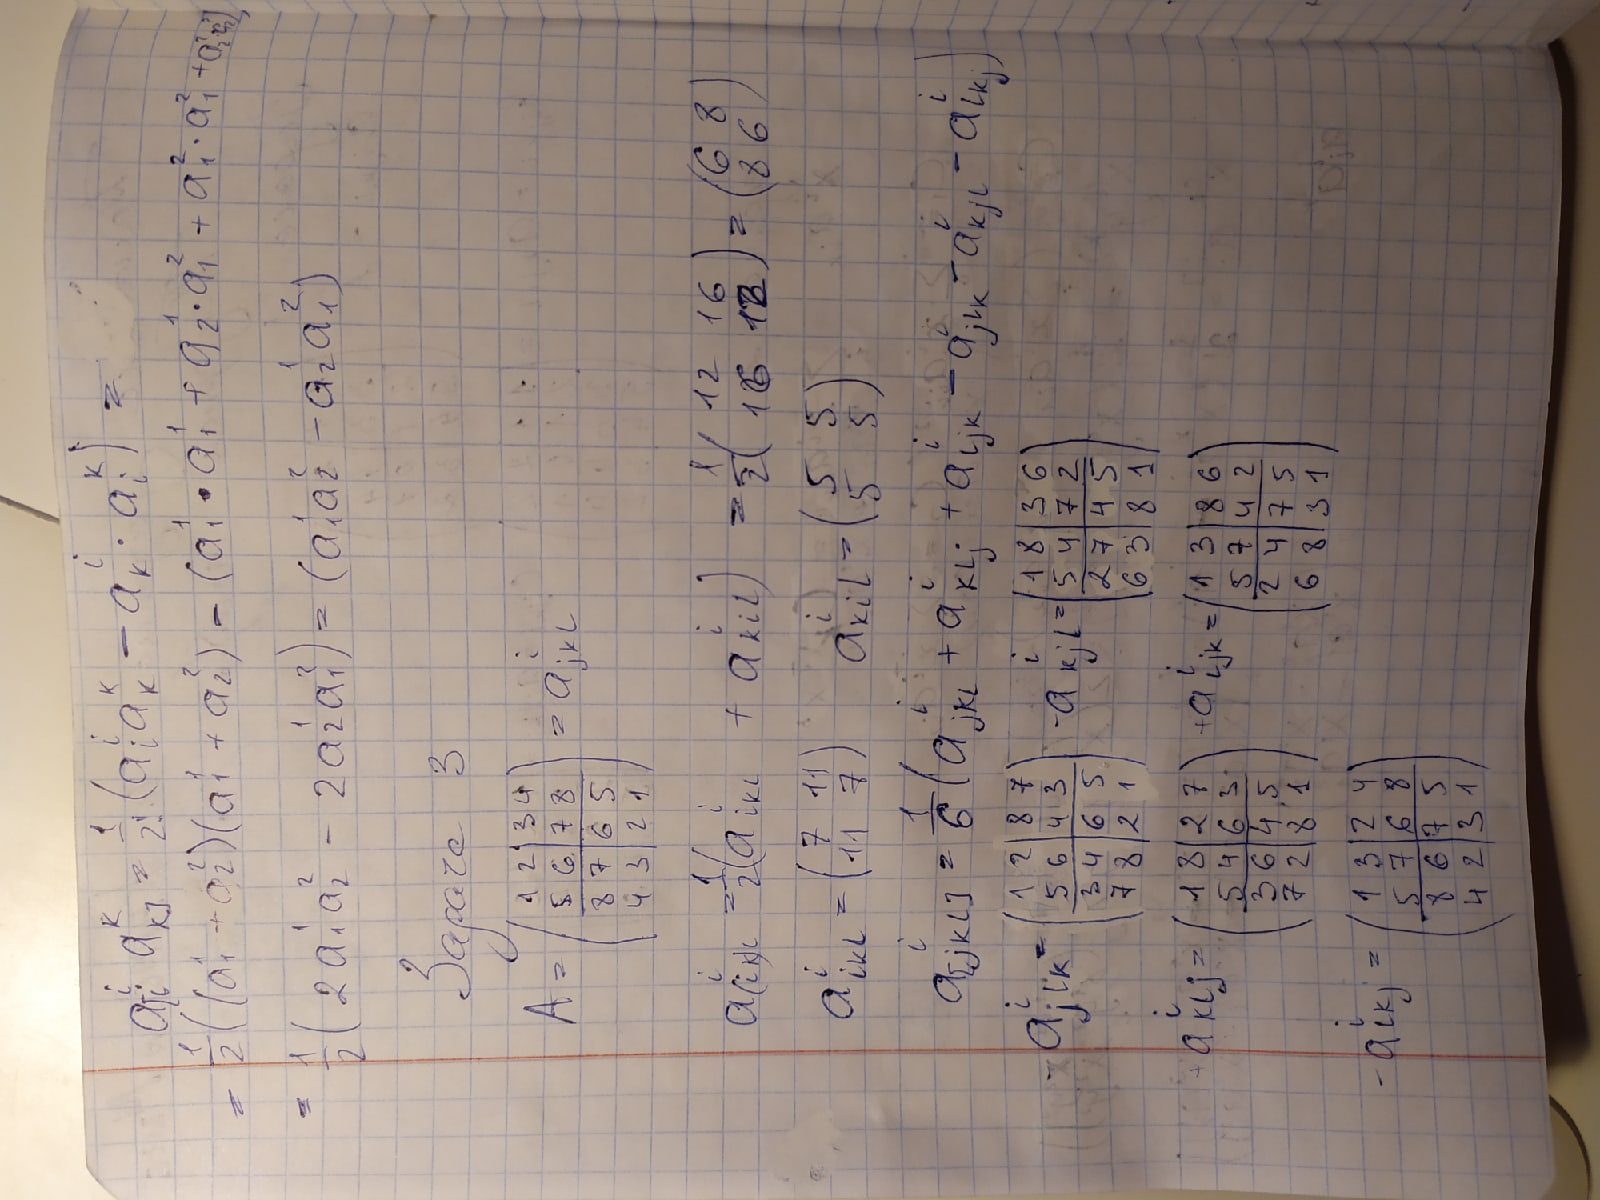 a^i_{[i} a^k_{k]} = 1/2! (a^i_i a^k_k − a^i_k · a^k_i) =
= 1/2 ((a^1_1 + a^2_2)(a^1_1 + a^2_2) − (a^1_1 · a^1_1 + a^1_2 · a^2_1 + a^2_1 · a^2_1 +
= 1/2 (2 a^1_1 a^2_2 − 2 a^1_2 a^2_1) = (a^1_1 a^2_2 − a^1_2 a^2_1)
Задача 3
A = ( 1 2 | 3 4
5 6 | 7 8
8 7 | 6 5
4 3 | 2 1 ) = a^i_{jkl}
a^i_{(ik)l} = 1/2 (a^i_{ikl} + a^i_{kil}) = 1/2 ( 12 16
16 12 ) = ( 6 8
8 6 )
a^i_{ikl} = ( 7 11
11 7 ) a^i_{kil} = ( 5 5
5 5 )
a^i_{[jkl]} = 1/6 (a^i_{jkl} + a^i_{klj} + a^i_{ljk} − a^i_{jlk} − a^i_{kjl} − a^i_{lkj})
− a^i_{jlk} = ( 1 2 | 8 7
5 6 | 4 3
3 4 | 6 5
7 8 | 2 1 )
− a^i_{kjl} = ( 1 8 | 3 6
5 4 | 7 2
2 7 | 4 5
6 3 | 8 1 )
+ a^i_{klj} = ( 1 8 | 2 7
5 4 | 6 3
3 6 | 4 5
7 2 | 8 1 )
+ a^i_{ljk} = ( 1 3 | 8 6
5 7 | 4 2
2 4 | 7 5
6 8 | 3 1 )
− a^i_{lkj} = ( 1 3 | 2 4
5 7 | 6 8
8 6 | 7 5
4 2 | 3 1 )